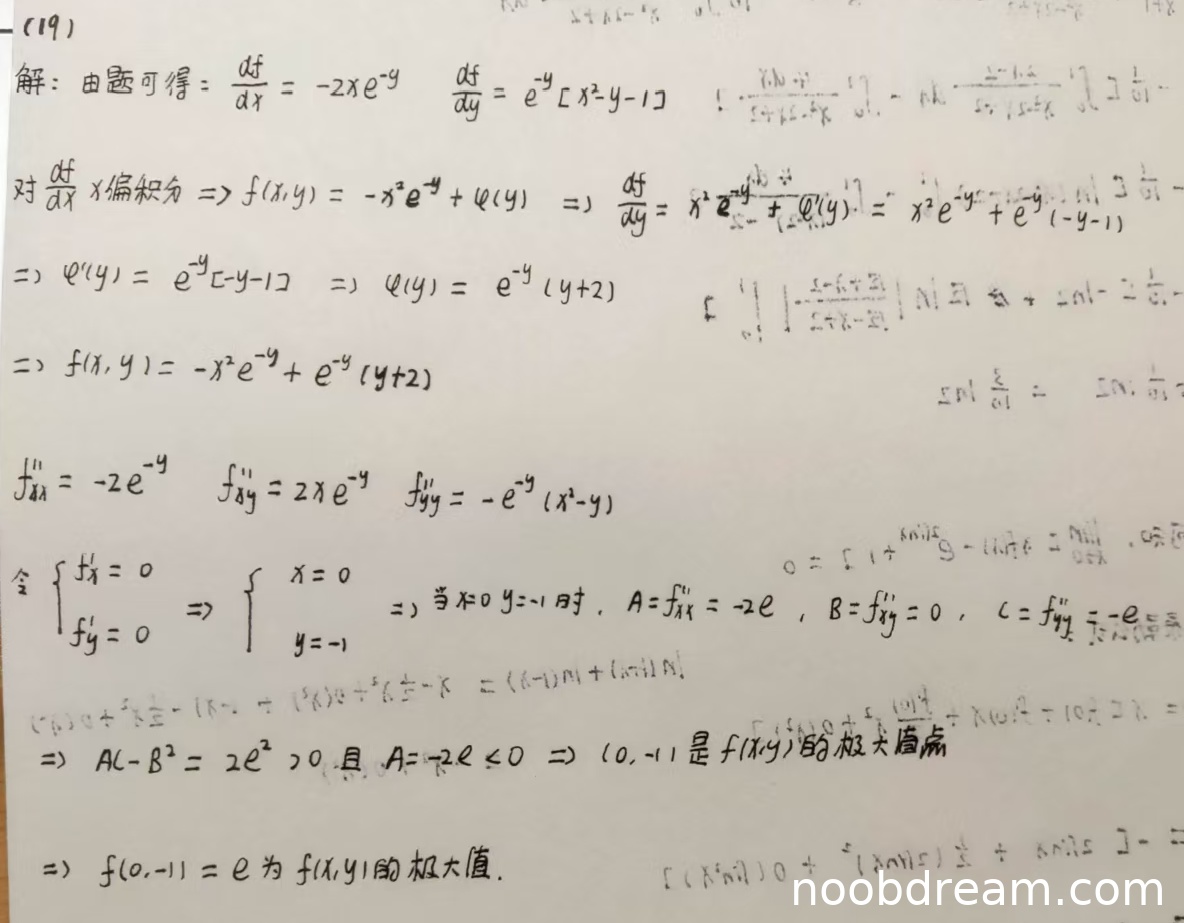 (19)
解: 由题可得: df/dx = -2xe^{-y}   df/dy = e^{-y}[x²-y-1]
对 df/dx x偏积分 => f(x,y) = -x²e^{-y} + φ(y) => df/dy = x²e^{-y} + φ'(y) = x²e^{-y} + e^{-y}(-y-1)
=> φ'(y) = e^{-y}[-y-1] => φ(y) = e^{-y}(y+2)
=> f(x,y) = -x²e^{-y} + e^{-y}(y+2)
f''xx = -2e^{-y}   f''xy = 2xe^{-y}   f''yy = -e^{-y}(x²-y)
令 { f'x = 0, f'y = 0 => { x = 0, y = -1 => 当x=0 y=-1时, A = f''xx = -2e, B = f''xy = 0, C = f''yy = -e
=> AC-B² = 2e² >0 且 A = -2e < 0 => (0,-1) 是 f(x,y) 的极大值点
=> f(0,-1) = e 为 f(x,y) 的极大值.
noobdream.com